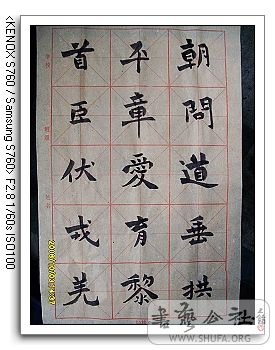 朝問道垂拱
平章愛育黎
首臣伏戎羌
學校
班級
姓名
<KENOX S760 / Samsung S760> F2.8 1/60s ISO100
書藝公社
WWW.SHUFA.ORG